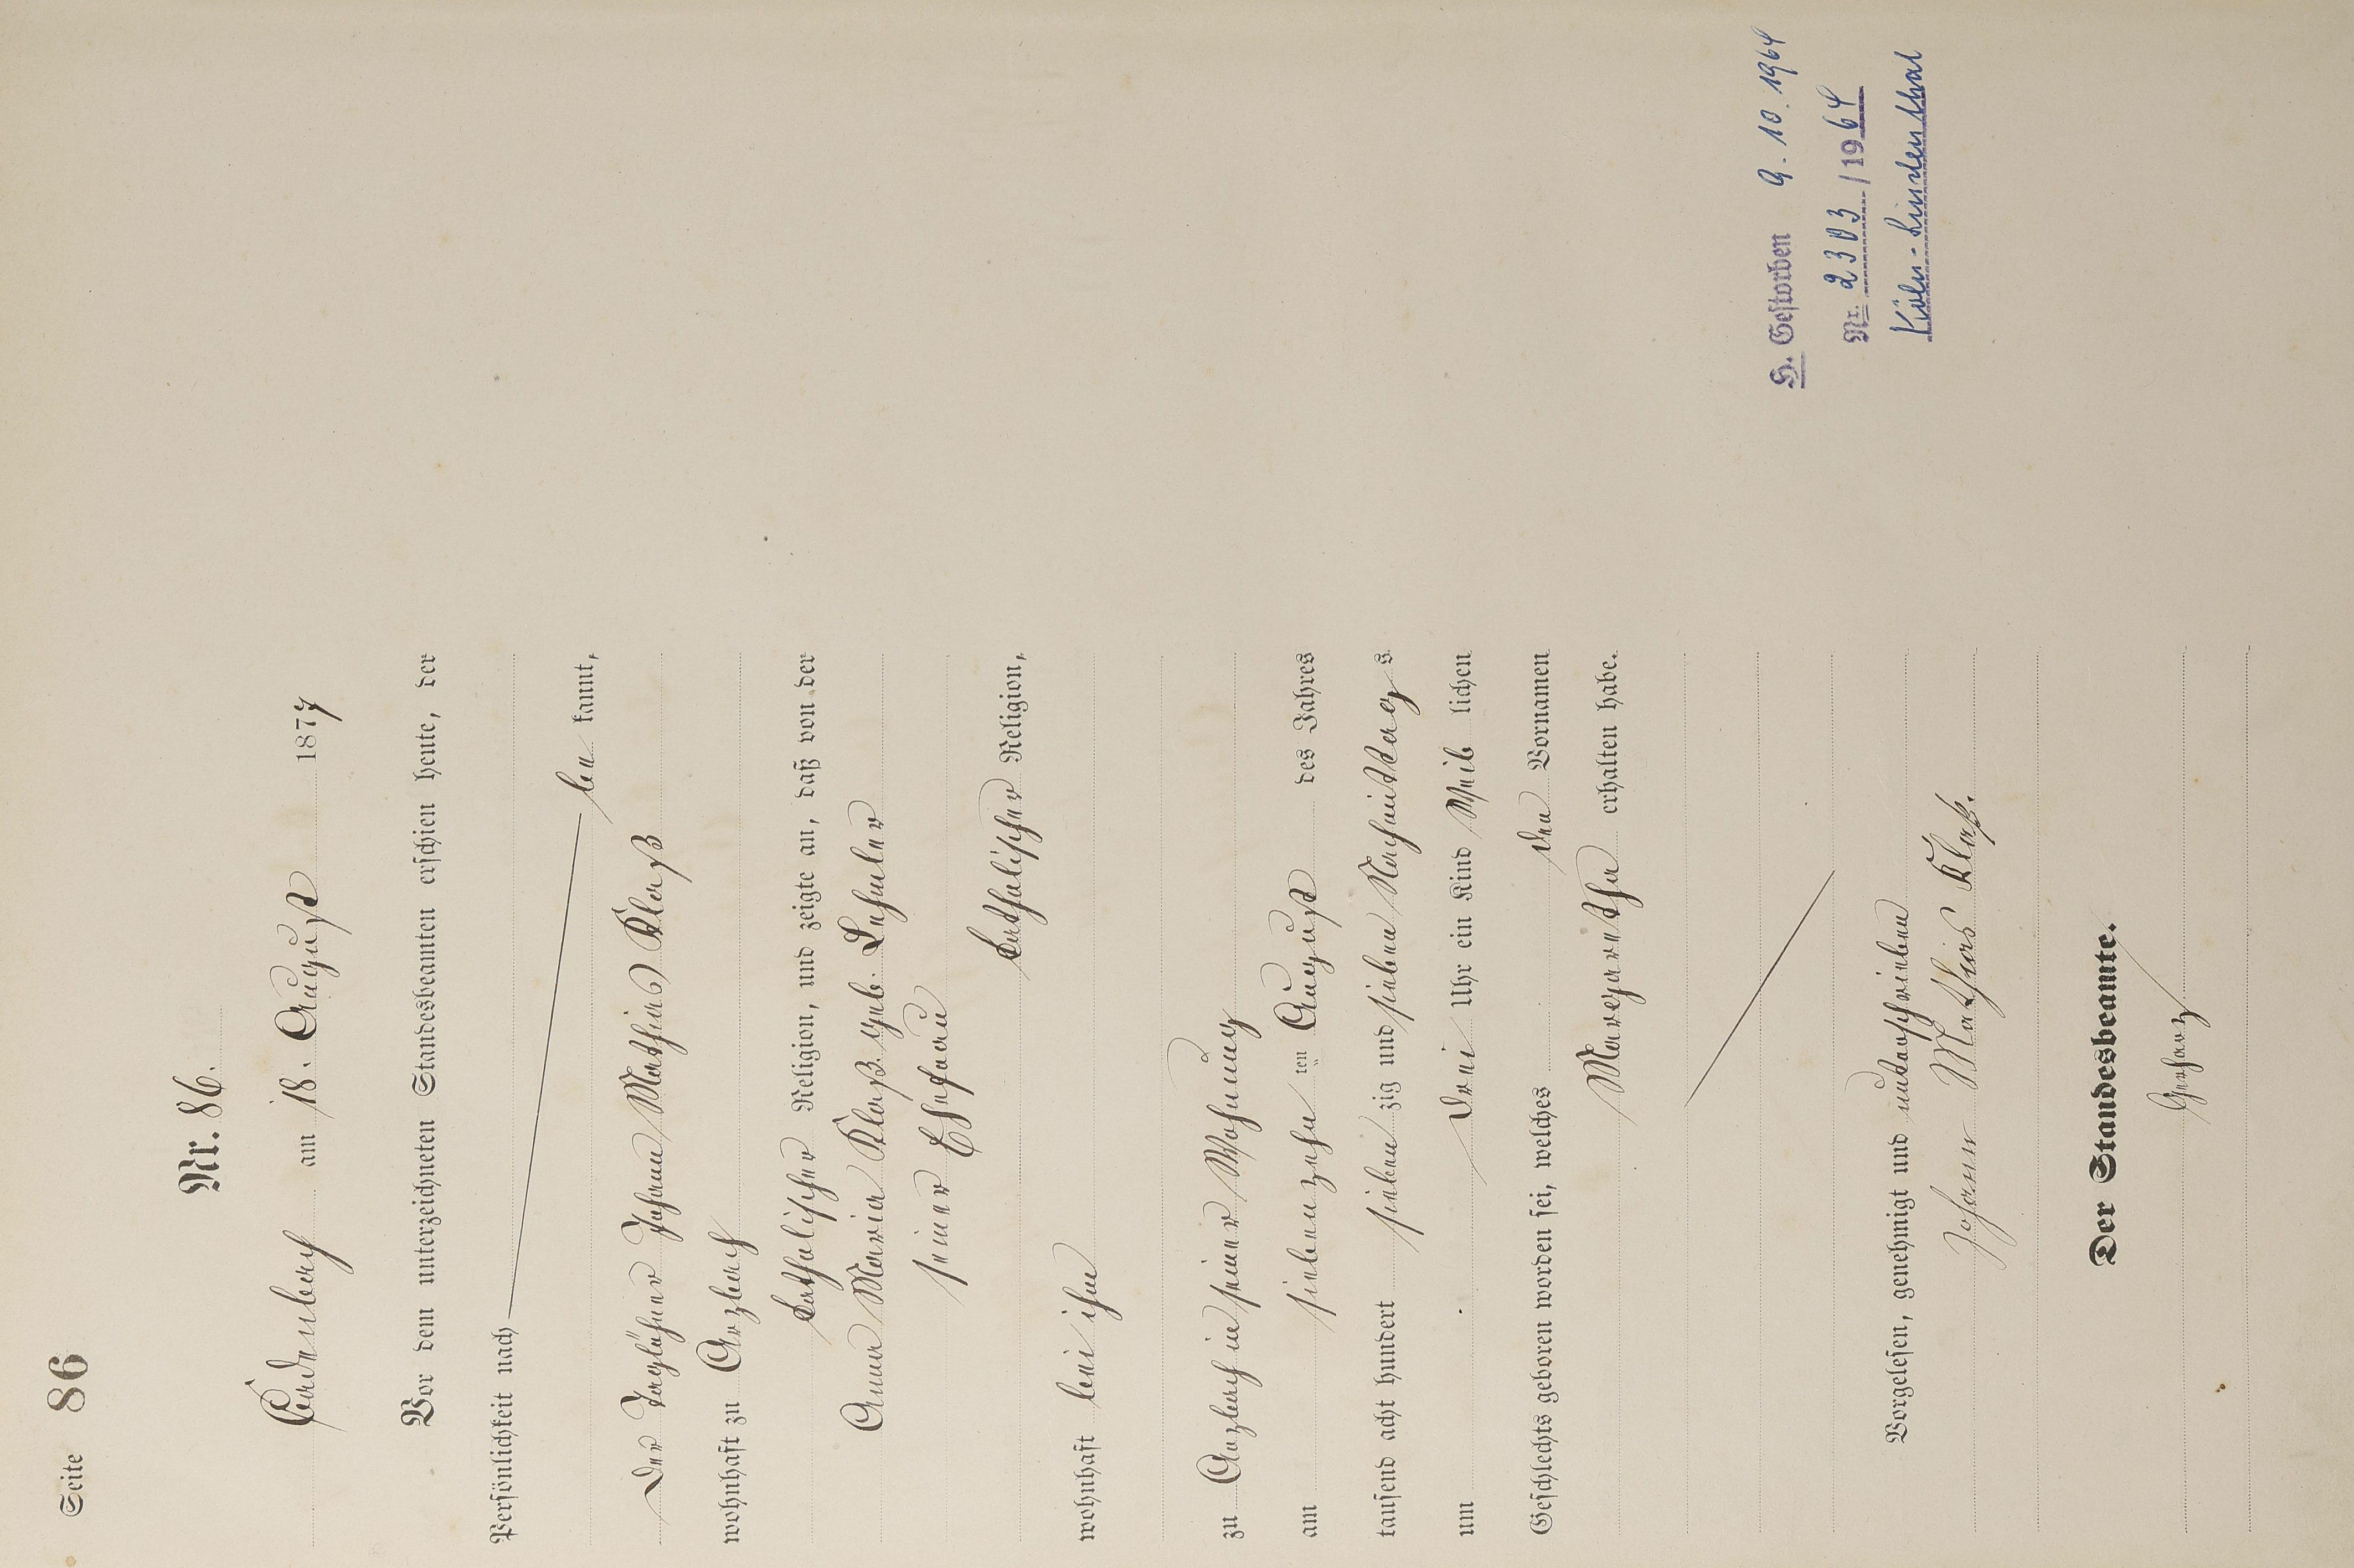 Seite 86
Nr. 86.
Cadenbach am 18. August 1877
Vor dem unterzeichneten Standesbeamten erschien heute, der
Persönlichkeit nach
be kannt,
der Taglöhner Johann Mathias Klaß
wohnhaft zu Arzbach
katholischer Religion, und zeigte an, daß von der
Anna Maria Klaß geb.
seiner Ehefrau
katholischer Religion,
wohnhaft bei ihm
zu Arzbach in seiner Wohnung
am siebenzehn ten August des Jahres
tausend acht hundert sieben zig und sieben Nachmittag s
um drei Uhr ein Kind weib lichen
Geschlechts geboren worden sei, welches den Vornamen
Margaretha erhalten habe.
Vorgelesen, genehmigt und unterschrieben
Johann Mathias Klaß.
Der Standesbeamte.
H. Gestorben 9. 10. 1964
Nr. 2303/1964
Köln-Lindenthal